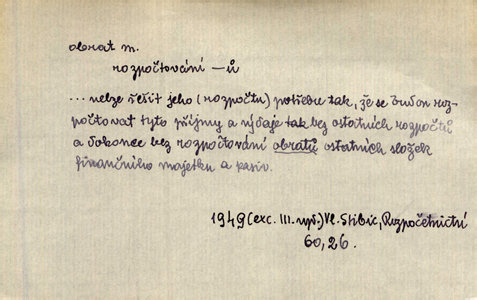 obrat m.
rozpočtování -ů
...nelze řešit jeho (rozpočtu) potřebu tak, že se budou roz-
počtovat tyto příjmy a výdaje tak bez ostatních rozpočtů
a dokonce bez rozpočtování obratů ostatních složek
finančního majetku a pasiv.
1949 (exc. III. upř.) Vl. Stibic, Rozpočetnictví
60, 26.